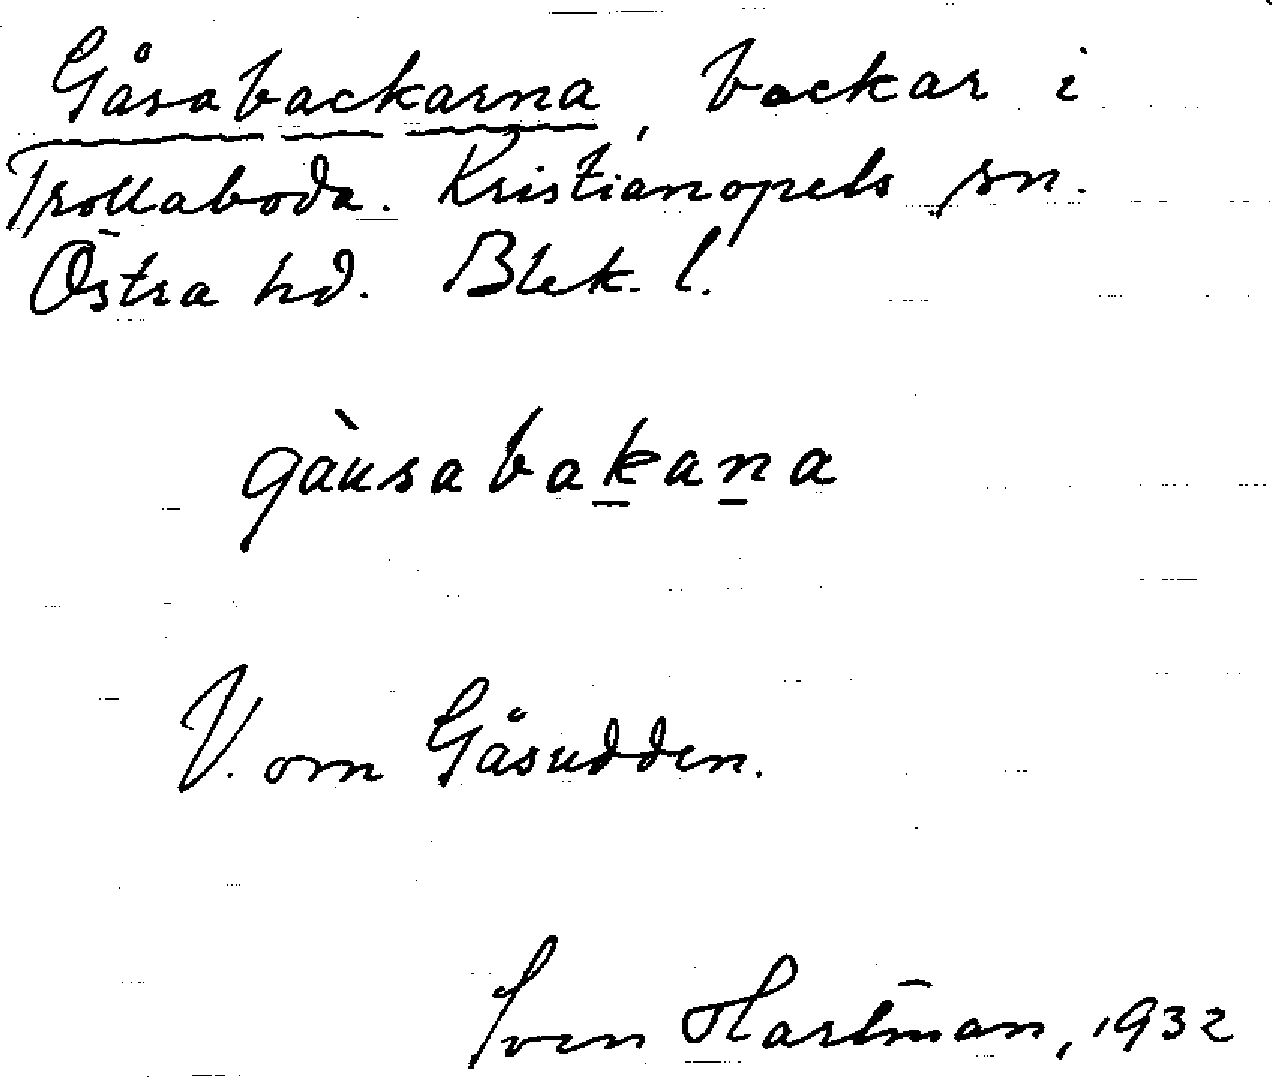 Gåsabackarna, backar i
Trollaboda. Kristianopels sn.
Östra hd. Blek. l.
gàusabakana
V. om Gåsudden.
Sven Hartman, 1932